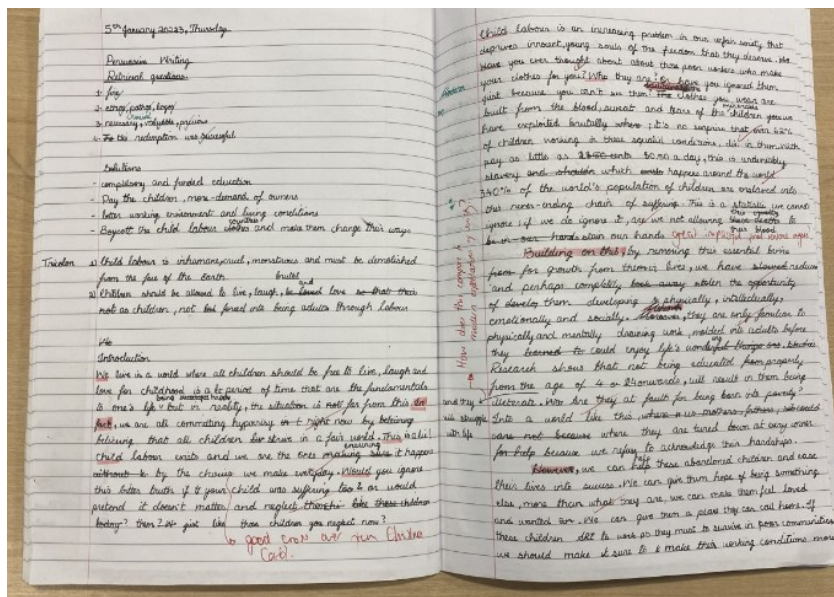 5th January 20223, Thursday
Persuasive Writing
Retrieval questions
1. five
2. ethos, pathos, logos
3. necessary, valuable, precious
4. The redemption was successful
Solutions
- compulsory and funded education
- Pay the children, more demand of owners
- better working environment and living conditions
- Boycott the child labour countries and make them change their ways
Tricolon 1) Child labour is inhumane, cruel, monstrous and must be demolished
from the face of the Earth.
2) Children should be allowed to live, laugh, and love
not as children, not forced into being adults through labour
Introduction
We live in a world where all children should be free to live, laugh and
love for childhood is a period of time that are the fundamentals
to one's life but in reality, the situation is not far from this. In
fact, we are all committing hypocrisy right now by
believing that all children strive in a fair world. This is a lie!
Child labour exists and we are the ones ensuring it happens
by the choices we make everyday. Would you ignore
this bitter truth if your child was suffering too? Or would
pretend it doesn't matter and neglect
them? just like those children you neglect now?
good cross over from Children
Child labour is an increasing problem in our unfair society that
deprives innocent, young souls of the freedom that they deserve.
Have you ever thought about about those poor workers who make
your clothes for you? Who they are? Or have you ignored them
just because you can't see them? The clothes you wear are
built from the blood, sweat and tears of the children you
have exploited brutally; it's no surprise that over 62%
of children working in these squalid conditions, die in them. With
pay as little as $0.50 a day, this is undeniably
slavery and which happens around the world.
of the world's population of children are enslaved into
this never-ending chain of suffering. This is a statistic we cannot
ignore; if we do ignore it, are we not allowing
stain our hands
Building on this, by removing this essential
for growth from their lives, we have reduced
and perhaps completely stolen the opportunity
of them developing physically, intellectually,
emotionally and socially. they are only familiar to
physically and mentally draining work, molded into adults before
they could enjoy life's wonderful things.
Research shows that not being educated properly
from the age of 4 onwards, will result in them being
illiterate. and they will struggle with life
Are they at fault for being born into poverty?
Into a world like this,
where they are turned down at every corner
for help because we refuse to acknowledge their hardships.
However, we can help these abandoned children and ease
their lives into success. We can give them hope of being something
else, more than what they are, we can make them feel loved
and wanted. We can give them a place they can call home. If
these children to work as they must to survive in poor communities
we should make it sure to make their working conditions more
How does this compare to